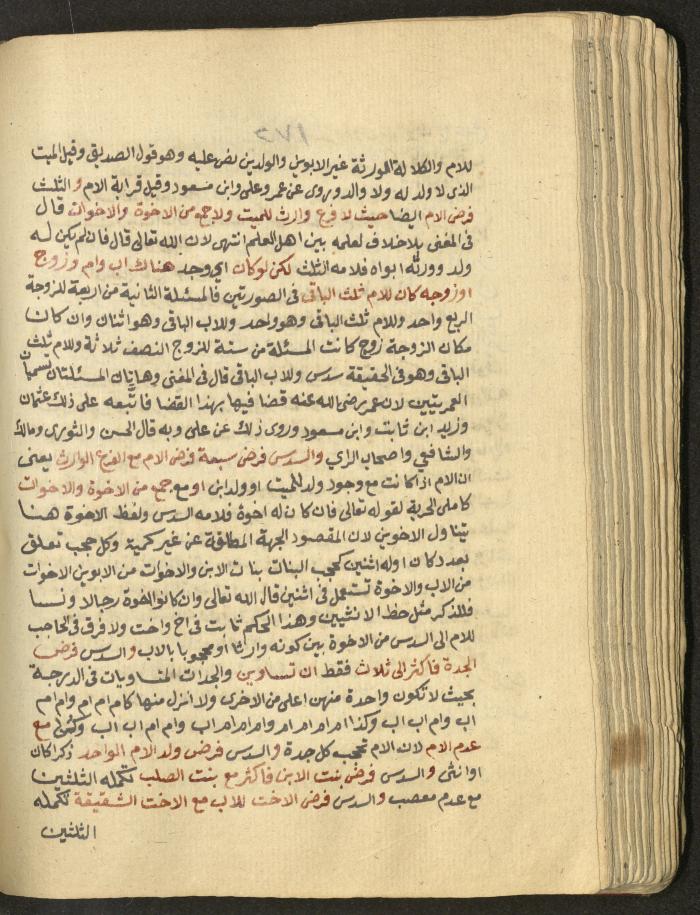 ١٧٥
للام والكلالة المورثة غير الابوين والولدين نص عليه وهو قول الصديق وقيل الميت
الذى لا ولد له ولا والد وروى عن عمر وعلى وابن مسعود وقيل قرابة الام والثلث
فرض الام ايضا حيث لا فرع وارث للميت ولا جمع من الاخوة والاخوات قال
فى المغنى بلا خلاف نعلمه بين اهل العلم انتهى لان الله تعالى قال فان لم يكن له
ولد وورثه ابواه فلامه الثلث لكن لو كان اى وجد هناك اب وام وزوج
او زوجه كان للام ثلث الباقى فى الصورتين فالمسئلة الثانية من اربعة للزوجة
الربع واحد وللام ثلث الباقى وهو واحد وللاب الباقى وهو اثنان وان كان
مكان الزوجة زوج كانت المسئلة من ستة للزوج النصف ثلاثة وللام ثلث
الباقى وهو فى الحقيقة سدس وللاب الباقى قال فى المغنى وهاتان المسئلتان تسميان
العمريتين لان عمر رضى الله عنه قضا فيها بهذا القضا فاتبعه على ذلك عثمان
وزيد ابن ثابت وابن مسعود وروى ذلك عن على وبه قال الحسن والثورى ومالك
والشافعى واصحاب الراي والسدس فرض سبعة فرض الام مع الفرع الوارث يعنى
ان الام اذا كانت مع وجود ولد للميت او ولد ابن او مع جمع من الاخوة والاخوات
كاملى الحرية لقوله تعالى فان كان له اخوة فلامه السدس ولفظ الاخوة هنا
يتناول الاخوين لان المقصود الجهة المطلقة عن غير كمية وكل حجب تعلق
بعدد كان اوله اثنين كحجب البنات بنات الابن والاخوات من الابوين الاخوات
من الاب والاخوة تستعمل فى اثنين قال الله تعالى وان كانوا اخوة رجالا ونسا
فللذكر مثل حظ الانثيين وهذا الحكم ثابت فى اخ واخت ولا فرق فى الحاجب
للام الى السدس من الاخوة بين كونه وارثا او محجوبا بالاب والسدس فرض
الجدة فاكثر الى ثلاث فقط ان تساوين والجدات المتساويات فى الدرجة
بحيث لا تكون واحدة منهن اعلى من الاخرى ولا انزل منها كام ام ام وام ام
اب وام اب اب وكذا ام ام ام ام وام ام ام اب وام ام اب اب وكن مع
عدم الام لان الام تحجب كل جدة والسدس فرض ولد الام الواحد ذكرا كان
او انثى والسدس فرض بنت الابن فاكثر مع بنت الصلب تكمله الثلثين
مع عدم معصب والسدس فرض الاخت للاب مع الاخت الشقيقة تكمله
الثلثين